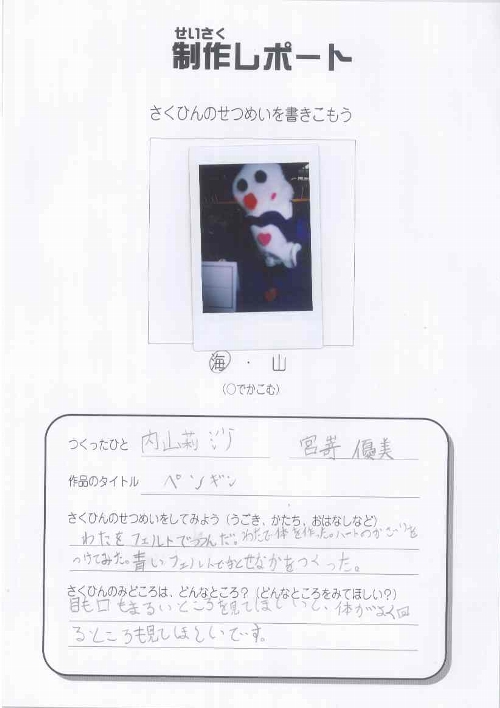 せいさく
制作レポート
さくひんのせつめいを書きこもう
海 ・ 山
(○でかこむ)
つくったひと 内山莉沙 宮嵜 優美
作品のタイトル ペンギン
さくひんのせつめいをしてみよう (うごき、かたち、おはなしなど)
わたをフェルトでつつんだ。わたで体を作った。ハートのかざりを
つけてみた。青いフェルトで とせなかをつくった。
さくひんのみどころは、どんなところ? (どんなところをみてほしい?)
目も口もまるいところを見てほしいのと、体がよく回
るところも見てほしいです。